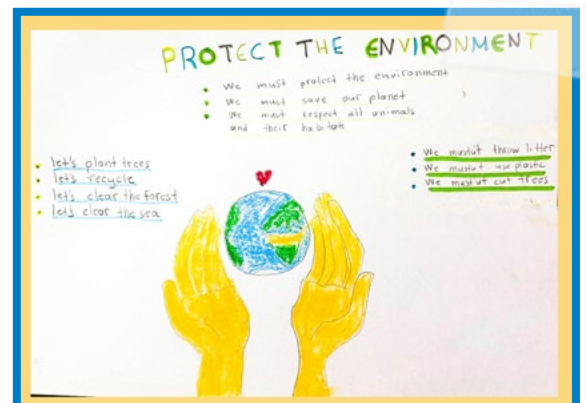 PROTECT THE ENVIRONMENT
• We must protect the environment
• We must save our planet
• We must respect all animals
and their habitats
• let's plant trees
• let's recycle
• let's clear the forest
• let's clear the sea
• We mustn't throw litter
• We mustn't use plastic
• We mustn't cut trees